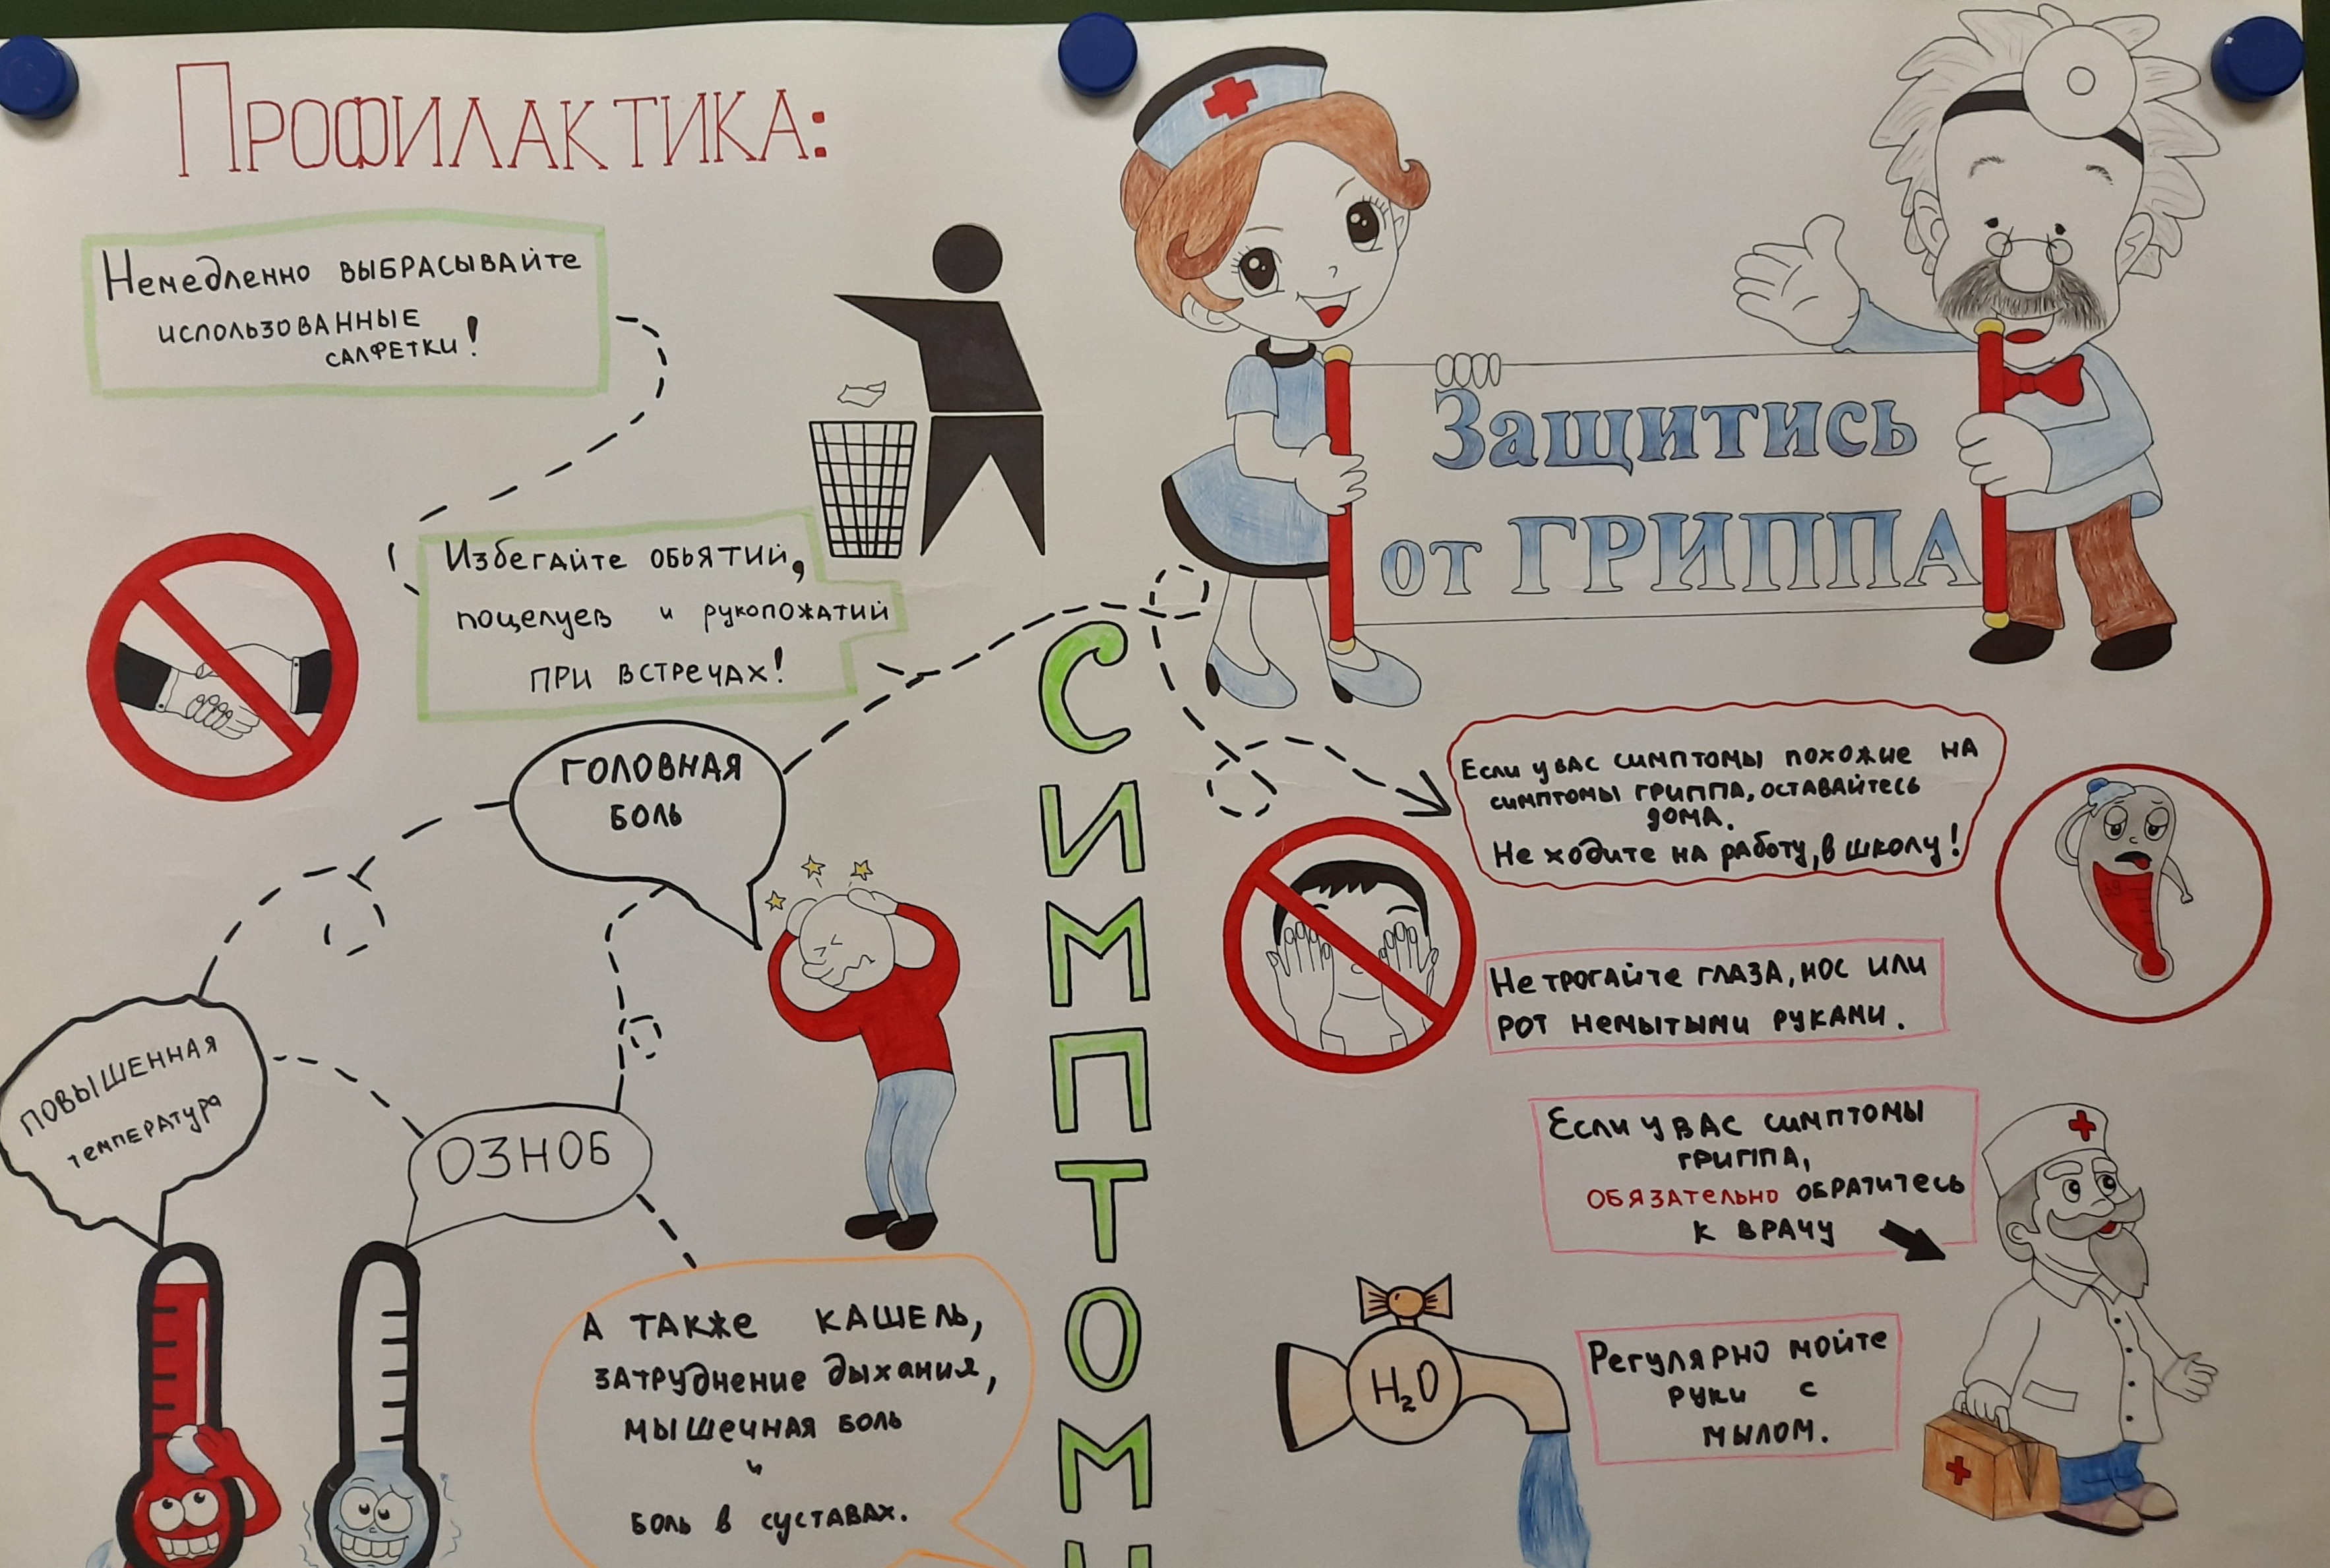 Профилактика:
Немедленно выбрасывайте
использованные
салфетки!
Избегайте обьятий,
поцелуев и рукопожатий
при встречах!
Защитись
от ГРИППА
СИМПТОМ
ГОЛОВНАЯ
БОЛЬ
ПОВЫШЕННАЯ
температура
ОЗНОБ
А также кашель,
затруднение дыхания,
мышечная боль
и
боль в суставах.
Если у вас симптомы похожие на
симптомы гриппа, оставайтесь
дома.
Не ходите на работу, в школу!
Не трогайте глаза, нос или
рот немытыми руками.
Если у вас симптомы
гриппа,
обязательно обратитесь
к врачу
H₂O
Регулярно мойте
руки с
мылом.